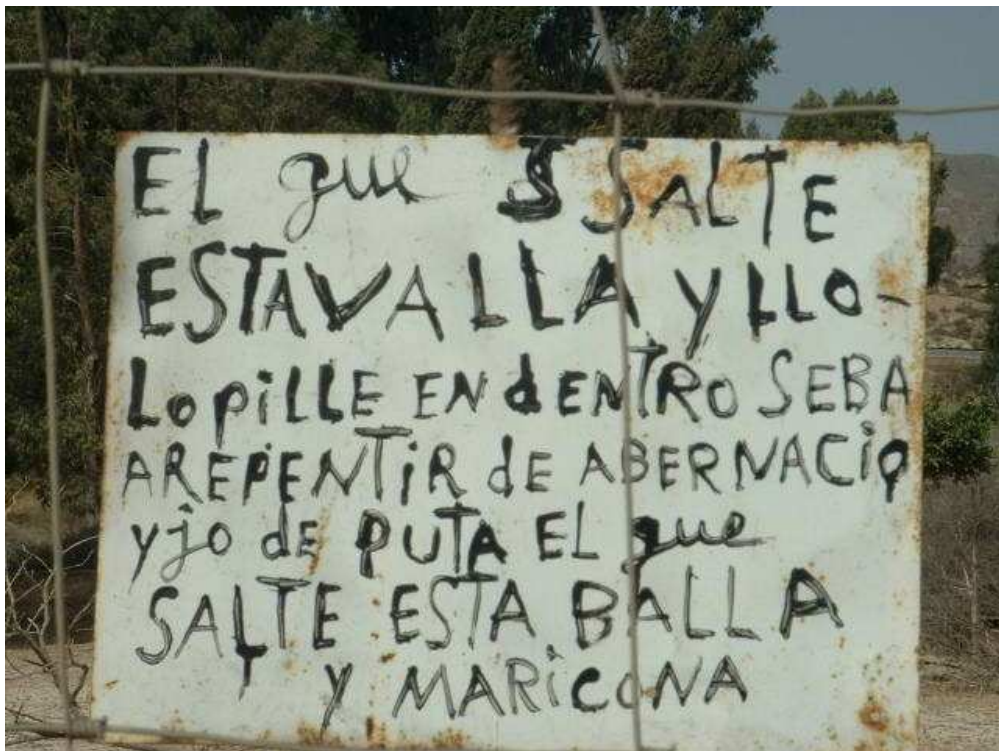 EL que SSALTE
ESTA VALLA Y LLO-
LO PiLLE EN dENTRO SEBA
AREPENTiR dE ABERNACiO
yjo dE PUTA EL que
SALTE ESTA BALLA
Y MARiCONA